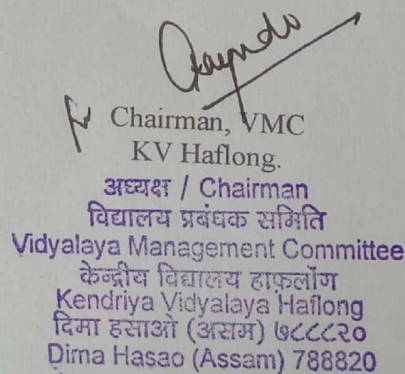 Chairman, VMC
KV Haflong.
अध्यक्ष / Chairman
विद्यालय प्रबंधक समिति
Vidyalaya Management Committee
केन्द्रीय विद्यालय हाफ़लोंग
Kendriya Vidyalaya Haflong
दिमा हसाओ (असम) ७८८८२०
Dima Hasao (Assam) 788820